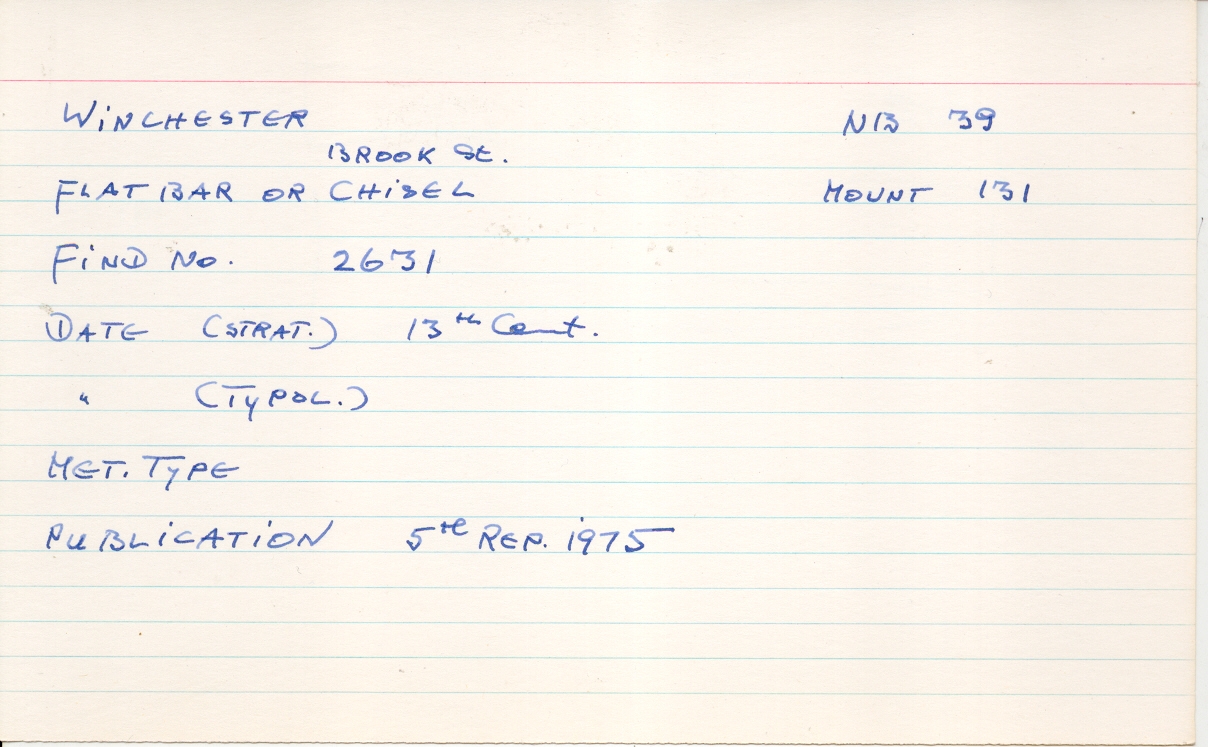 WINCHESTER NB 39
BROOK St.
FLAT BAR OR CHISEL MOUNT 131
FIND No. 2631
DATE (STRAT.) 13th Cent.
" (TYPOL.)
MET. TYPE
PUBLICATION 5th REP. 1975